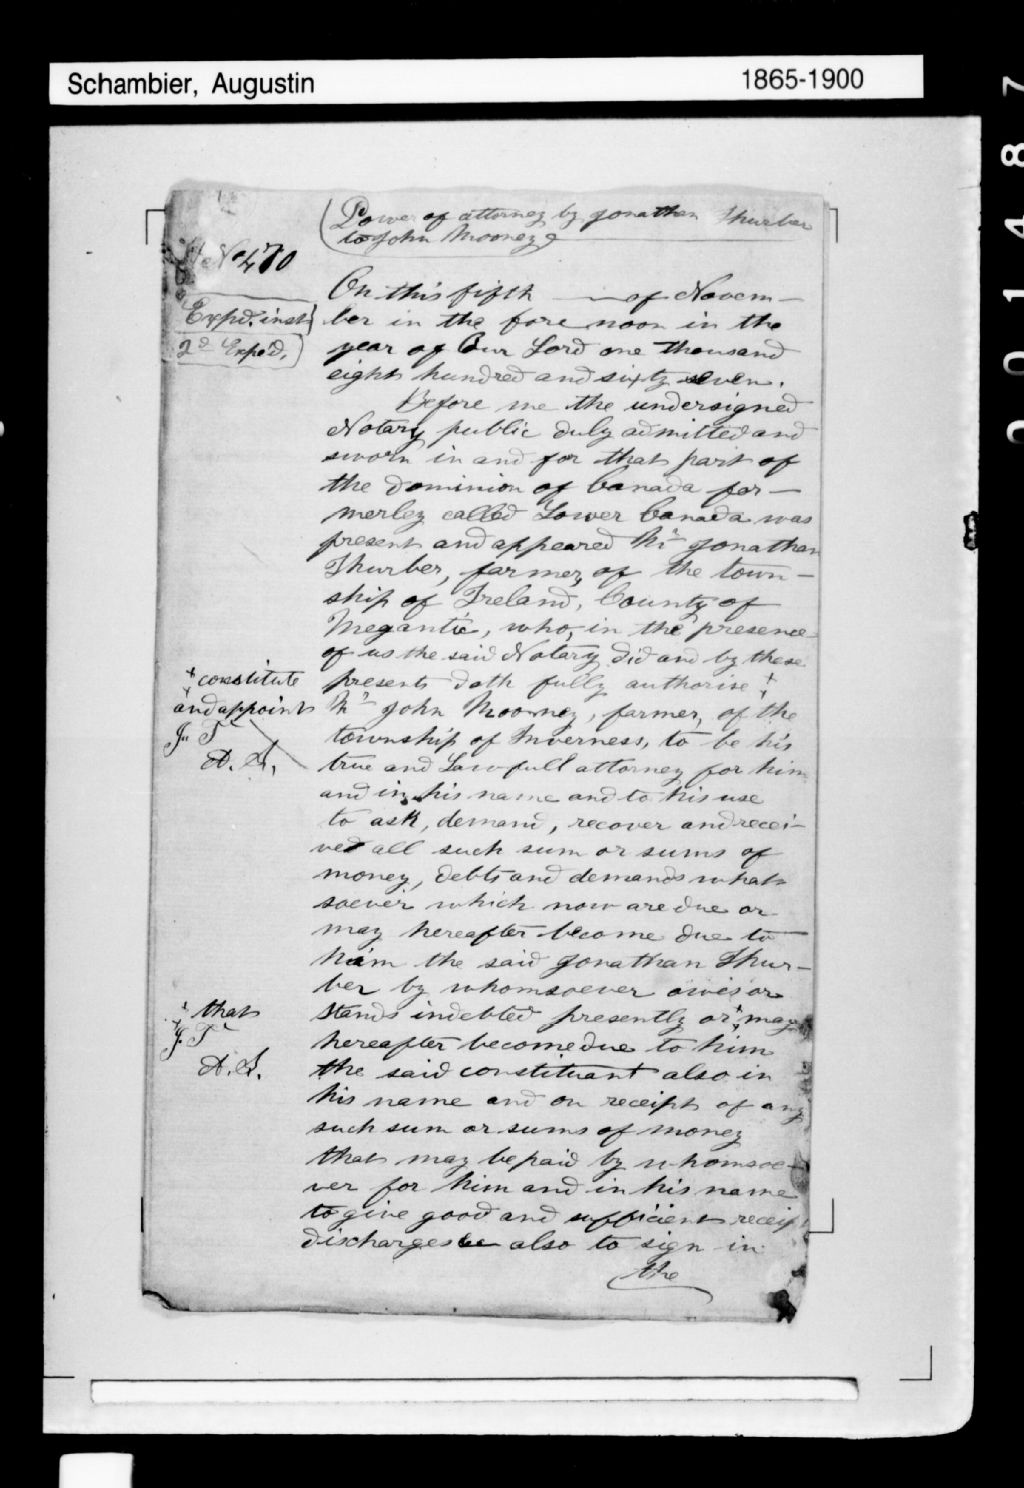 Schambier, Augustin 1865-1900
Power of attorney by Jonathan Thurber
to John Mooney
No 470
Exp'd. inst
2d Expe'd,
On this fifth — of Novem-
ber in the fore noon in the
year of Our Lord one thousand
eight hundred and sixty seven.
Before me the undersigned
Notary public duly admitted and
sworn in and for that part of
the dominion of Canada for-
merley called Lower Canada was
present and appeared Mr Jonathan
Thurber, farmer, of the town-
ship of Ireland, County of
Megantic, who, in the presence
of us the said Notary did and by these
presents doth fully authorise ‡
‡ constitute
and appoint
J. T
A. S.
Mr John Mooney, farmer, of the
township of Inverness, to be his
true and Lawfull attorney for him
and in his name and to his use
to ask, demand, recover and recei-
ved all such sum or sums of
money, debts and demands what
soever which now are due or
may hereafter become due to
him the said Jonathan Thur-
ber by whomsoever owes or
stands indebted presently or ‡ may
‡ that
J. T
A. S.
hereafter become due to him
the said constituant also in
his name and on receipt of any
such sum or sums of money
that may be paid by whomsoe-
ver for him and in his name
to give good and sufficient receipt
discharges also to sign in
the
201487